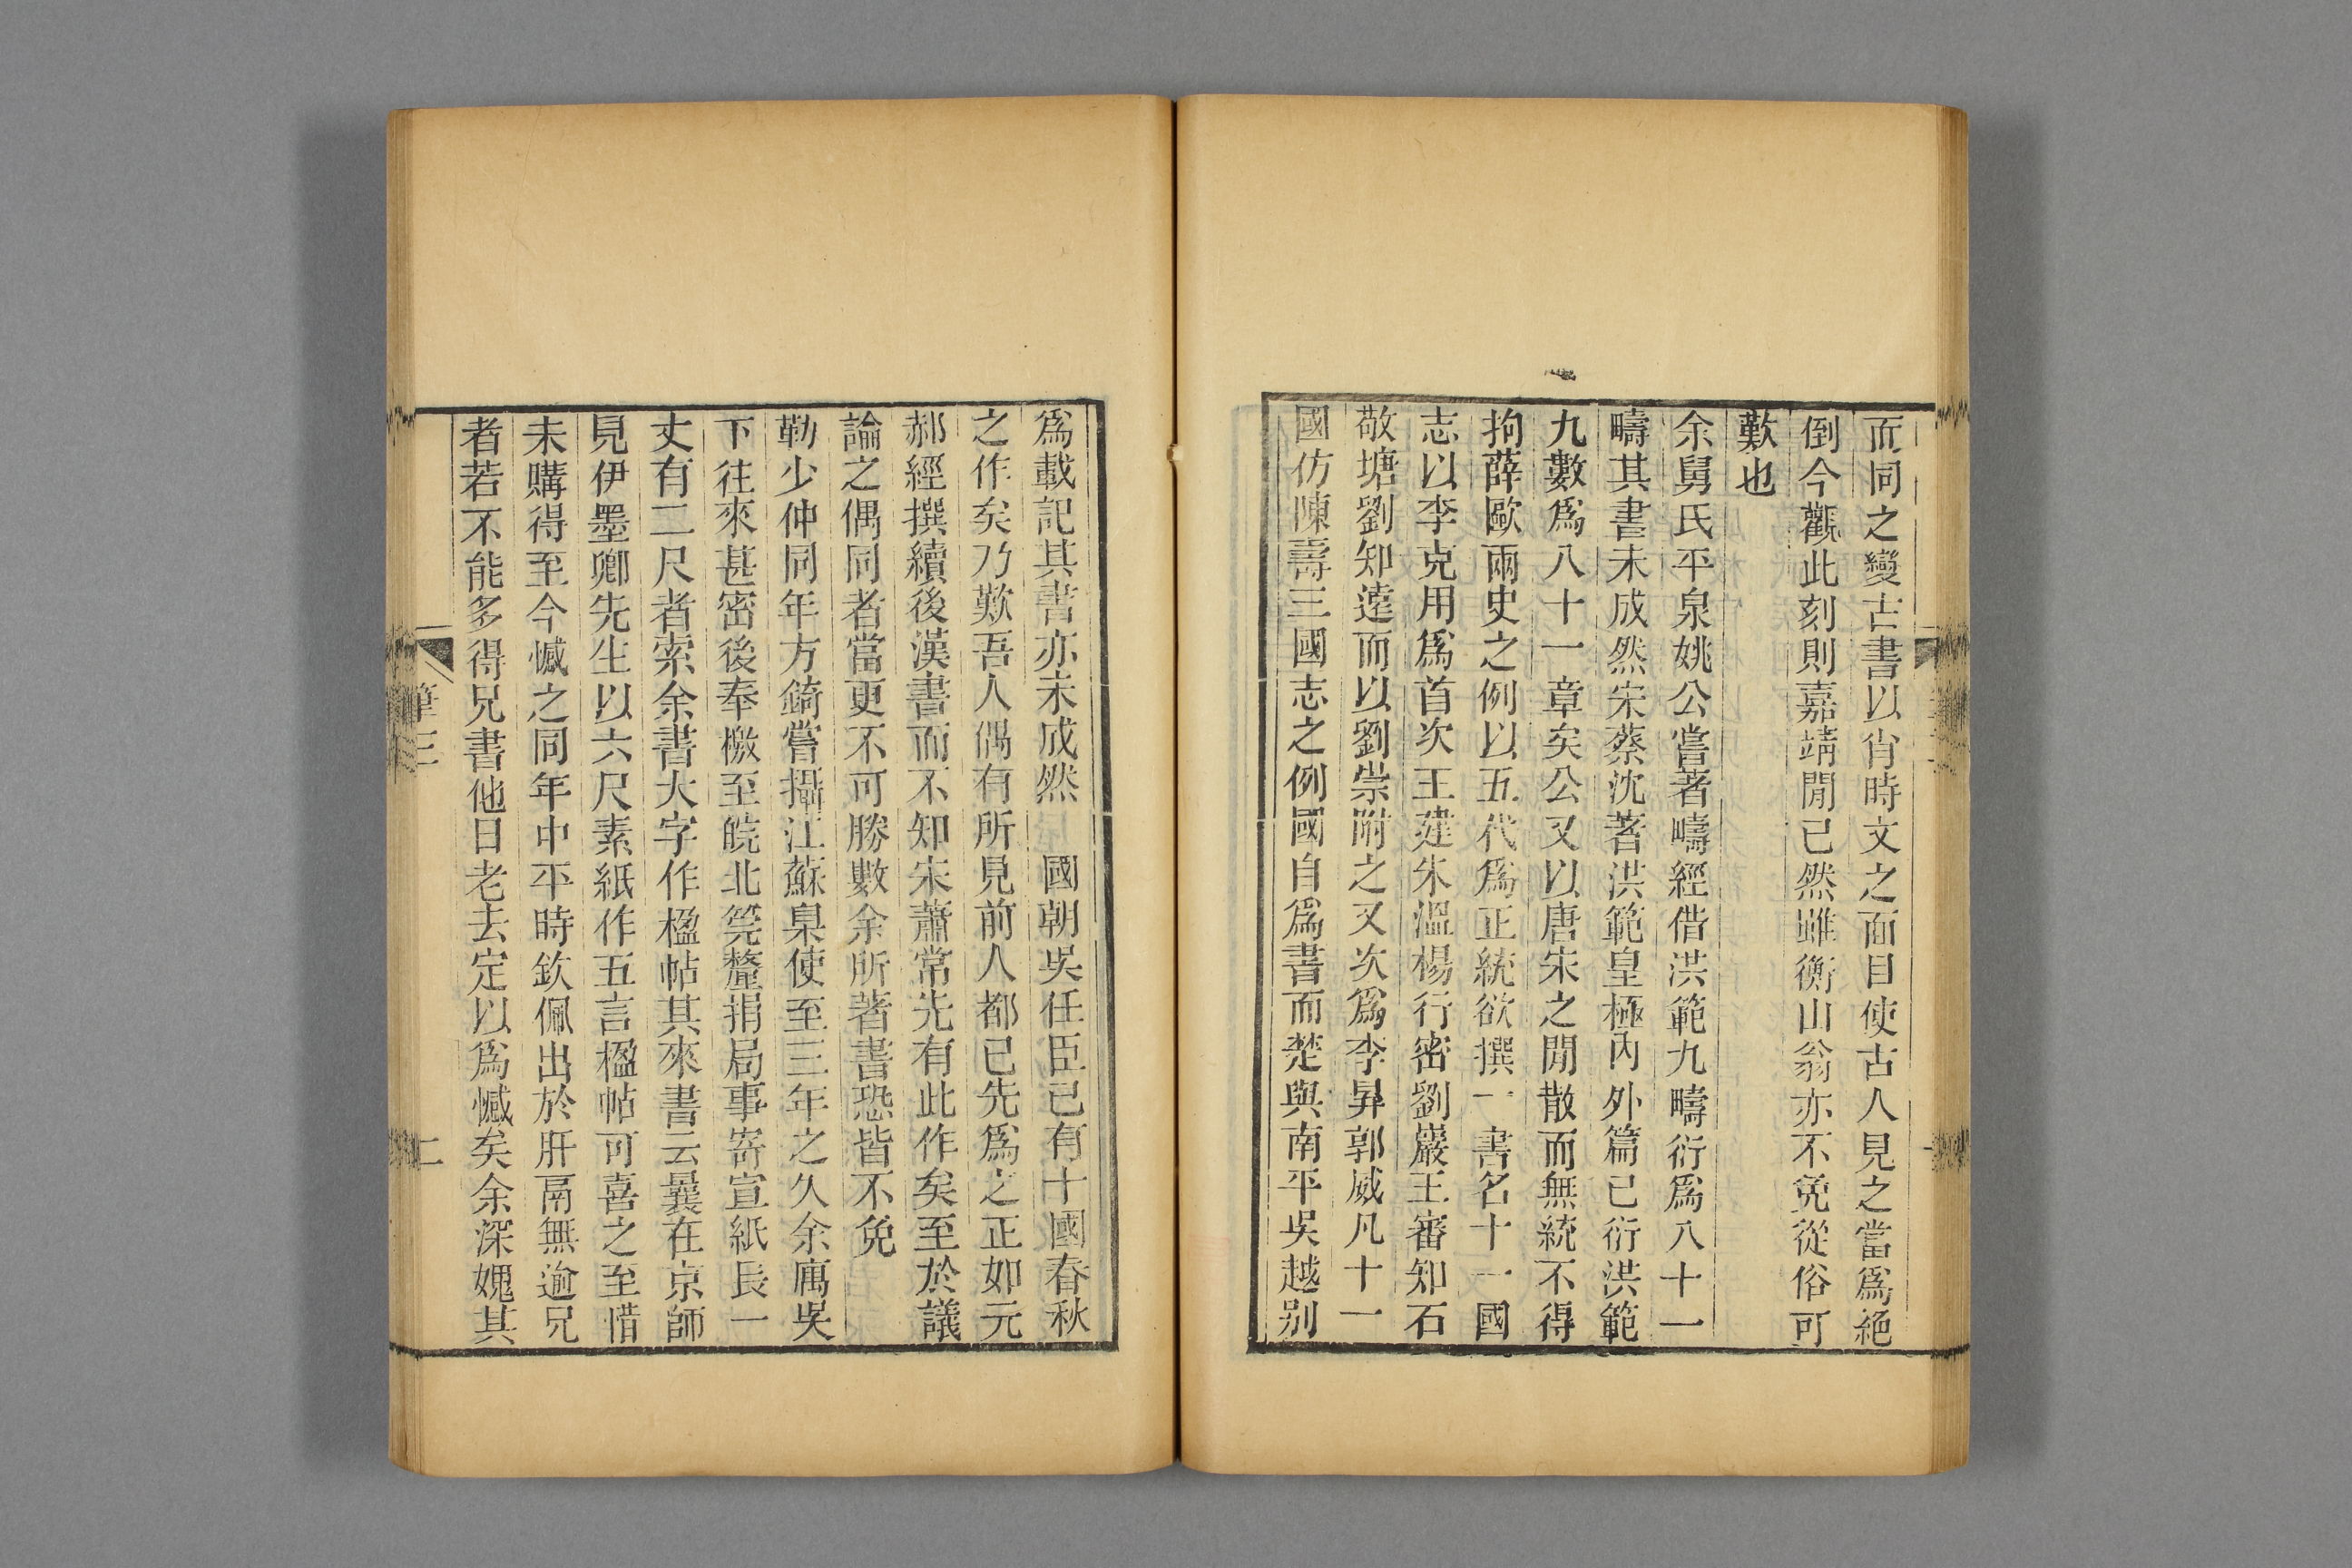 而同之變古書以肖時文之面目使古人見之當爲絶
倒今觀此刻則嘉靖閒已然雖衡山翁亦不免從俗可
歎也
余舅氏平泉姚公嘗著疇經偕洪範九疇衍爲八十一
疇其書未成然宋蔡沈著洪範皇極內外篇已衍洪範
九數爲八十一章矣公又以唐宋之閒散而無統不得
拘薛歐兩史之例以五代爲正統欲撰一書名十一國
志以李克用爲首次王建朱溫楊行密劉巖王審知石
敬塘劉知遠而以劉崇附之又次爲李昇郭威凡十一
國仿陳壽三國志之例國自爲書而楚與南平吳越别
爲載記其書亦未成然 國朝吳任臣已有十國春秋
之作矣乃歎吾人偶有所見前人都已先爲之正如元
郝經撰續後漢書而不知宋蕭常先有此作矣至於議
論之偶同者當更不可勝數余所著書恐皆不免
勒少仲同年方錡嘗攝江蘇臬使至三年之久余寓吳
下往來甚密後奉檄至皖北筦釐捐局事寄宣紙長一
丈有二尺者索余書大字作楹帖其來書云曩在京師
見伊墨卿先生以六尺素紙作五言楹帖可喜之至惜
未購得至今憾之同年中平時欽佩出於肝鬲無逾兄
者若不能多得兄書他日老去定以爲憾矣余深媿其
筆三
二